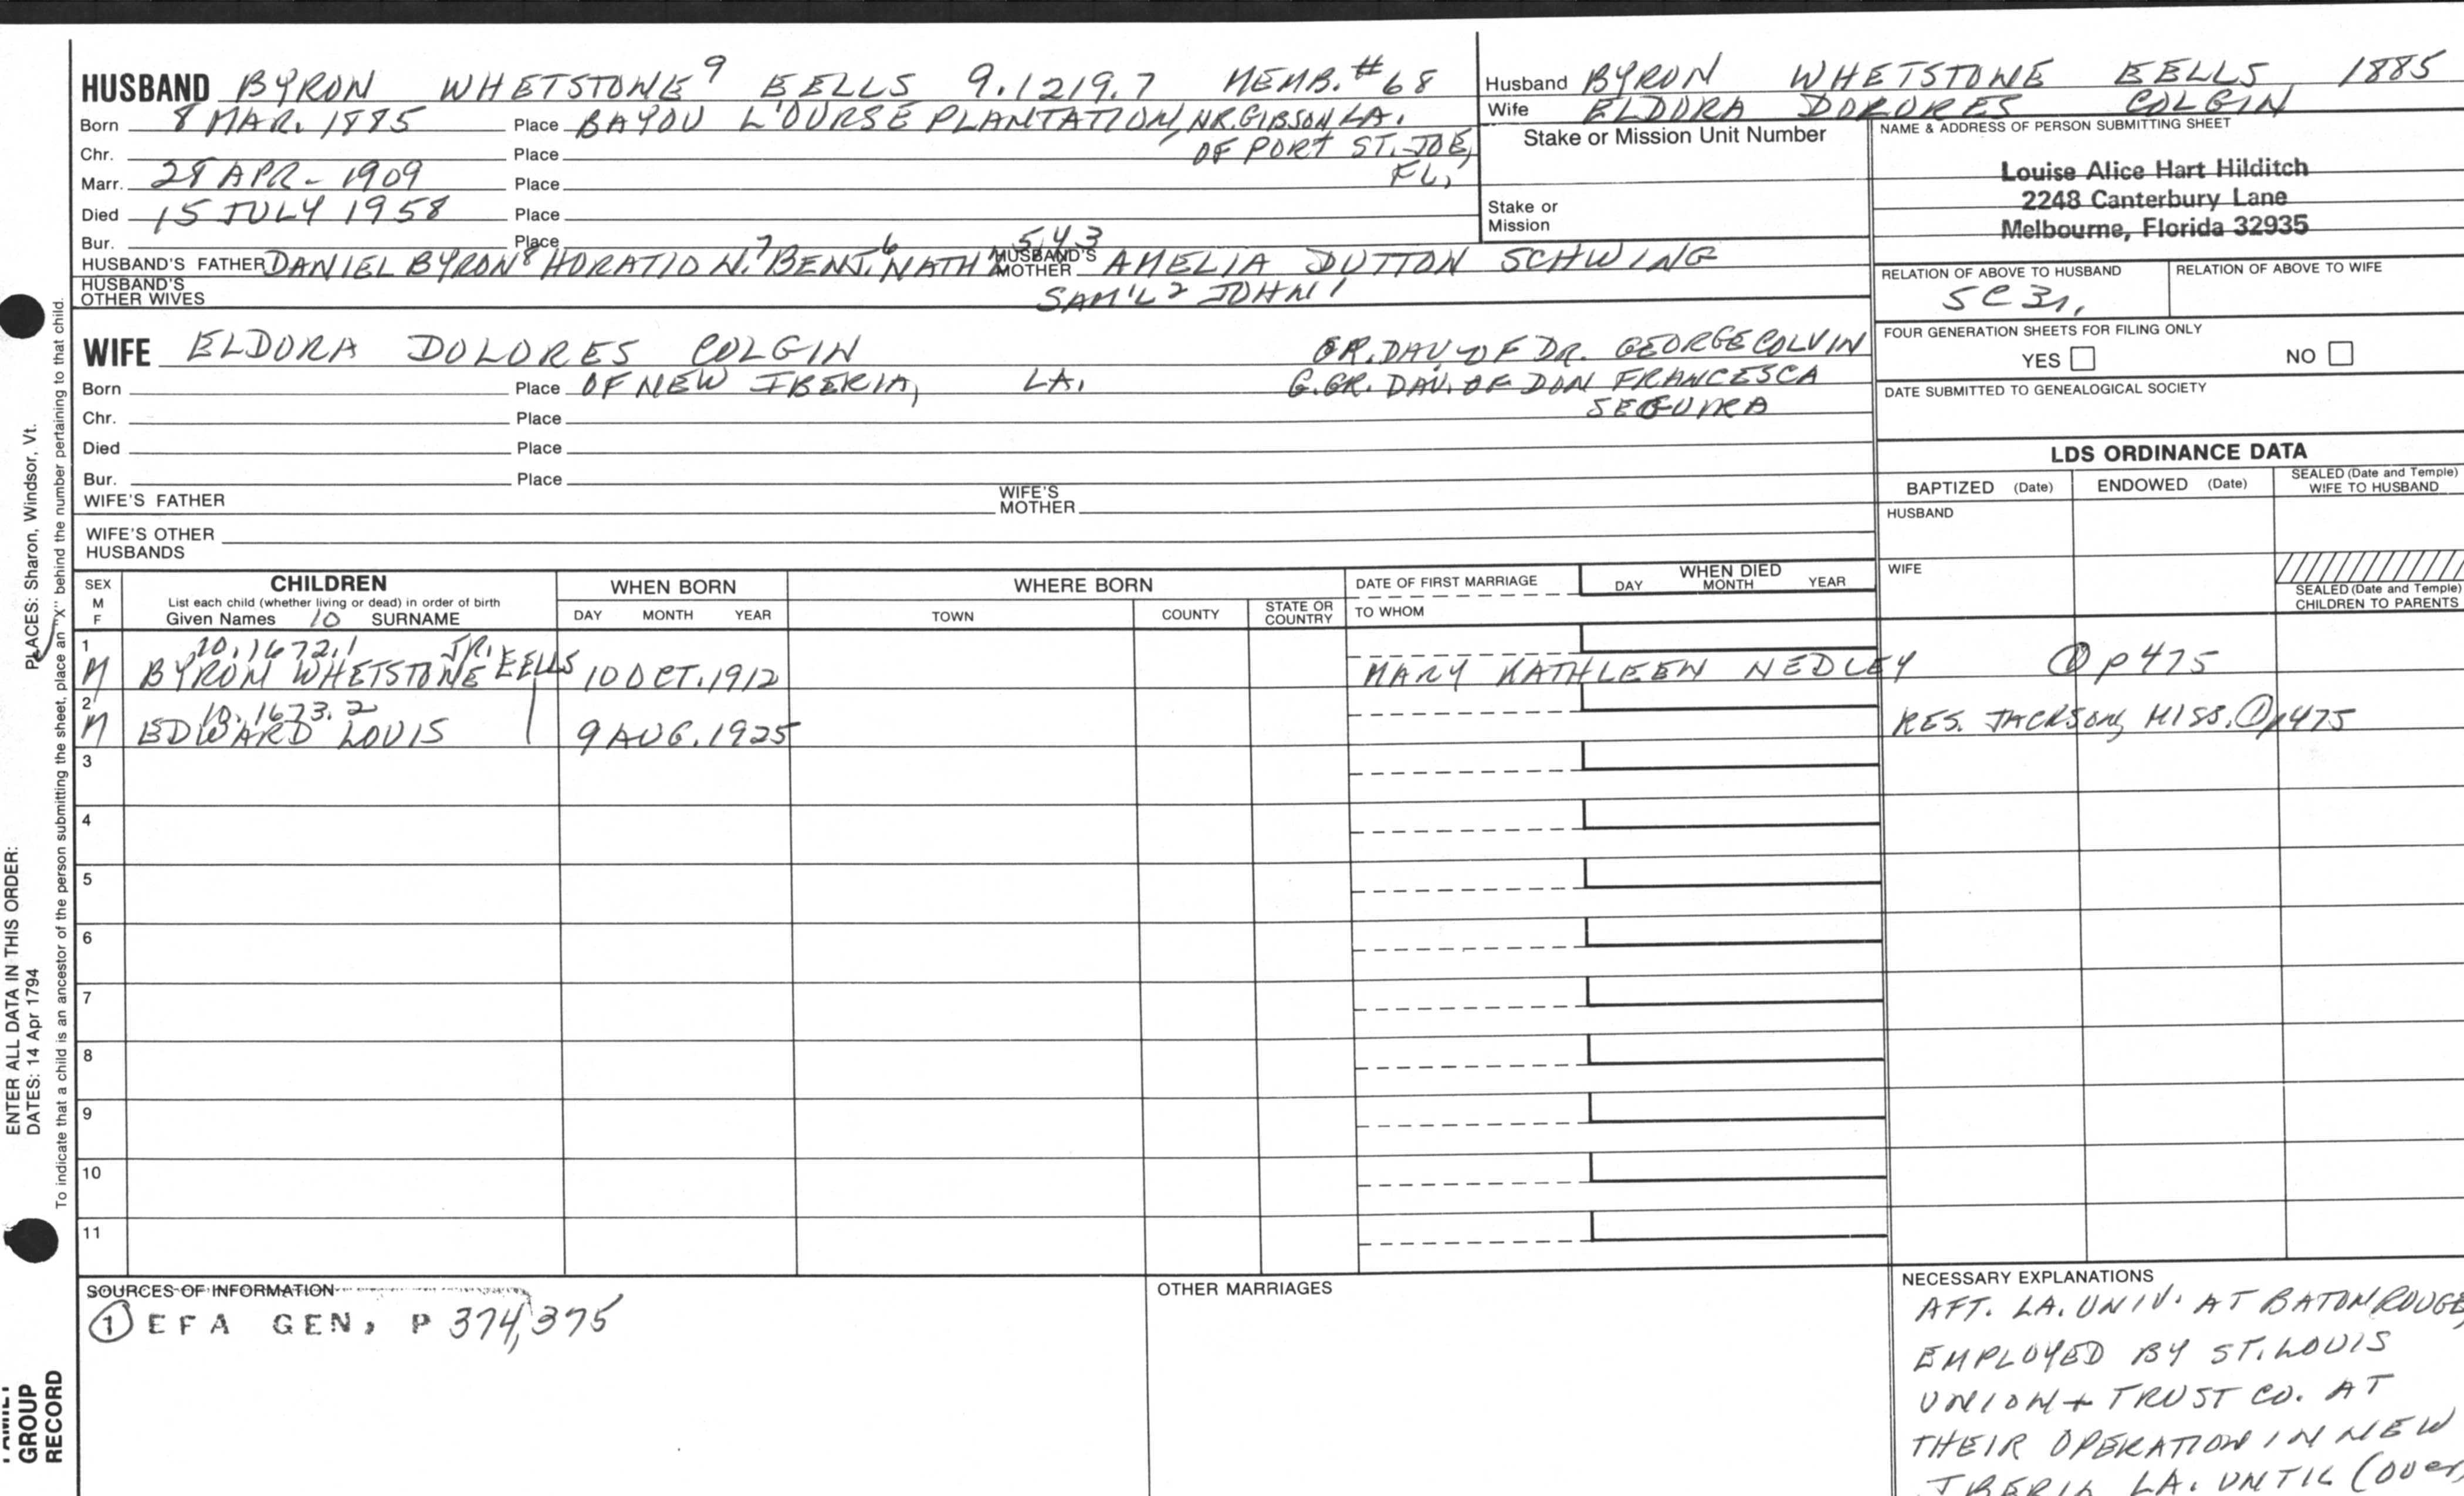 HUSBAND BYRON WHETSTONE⁹ EELLS 9.1219.7 MEMB. #68
Born 8 MAR. 1885 Place BAYOU L'OURSE PLANTATION, NR. GIBSON LA.
Chr. Place OF PORT ST. JOE,
Marr. 28 APR - 1909 Place FL,
Died 15 JULY 1958 Place
Bur. Place
HUSBAND'S FATHER DANIEL BYRON⁸ HORATIO N.⁷ BENJ.⁶ NATH 5 4 3 HUSBAND'S MOTHER AMELIA DUTTON SCHWING
HUSBAND'S OTHER WIVES SAM'L² JOHN¹
Husband BYRON WHETSTONE EELLS 1885
Wife ELDORA DOLORES COLGIN
Stake or Mission Unit Number
Stake or
Mission
NAME & ADDRESS OF PERSON SUBMITTING SHEET
Louise Alice Hart Hilditch
2248 Canterbury Lane
Melbourne, Florida 32935
RELATION OF ABOVE TO HUSBAND RELATION OF ABOVE TO WIFE
5C3r,
FOUR GENERATION SHEETS FOR FILING ONLY
YES NO
DATE SUBMITTED TO GENEALOGICAL SOCIETY
WIFE ELDORA DOLORES COLGIN GR. DAU. OF DR. GEORGE COLVIN
Born Place OF NEW IBERIA, LA. G. GR. DAU. OF DON FRANCESCA
Chr. Place
Died Place
Bur. Place
WIFE'S FATHER WIFE'S MOTHER
WIFE'S OTHER
HUSBANDS
LDS ORDINANCE DATA
BAPTIZED (Date) ENDOWED (Date) SEALED (Date and Temple) WIFE TO HUSBAND
HUSBAND
WIFE
SEALED (Date and Temple) CHILDREN TO PARENTS
SEX
M
F
CHILDREN
List each child (whether living or dead) in order of birth
Given Names 10 SURNAME
WHEN BORN
DAY MONTH YEAR
WHERE BORN
TOWN COUNTY STATE OR COUNTRY
DATE OF FIRST MARRIAGE
TO WHOM
WHEN DIED
DAY MONTH YEAR
1 10.1672.1 JR.
M BYRON WHETSTONE EELLS 10 OCT. 1912 MARY KATHLEEN NEDLEY ① p475
2 10.1673.2
M EDWARD LOUIS 9 AUG. 1925 RES. JACKSON, MISS. ① p475
3
4
5
6
7
8
9
10
11
SOURCES OF INFORMATION
① EFA GEN, P 374, 375
OTHER MARRIAGES
NECESSARY EXPLANATIONS
AFT. LA. UNIV. AT BATON ROUGE,
EMPLOYED BY ST. LOUIS
UNION + TRUST CO. AT
THEIR OPERATION IN NEW
IBERIA LA. UNTIL (over
ENTER ALL DATA IN THIS ORDER:
DATES: 14 Apr 1794 PLACES: Sharon, Windsor, Vt.
To indicate that a child is an ancestor of the person submitting the sheet, place an "X" behind the number pertaining to that child.
GROUP
RECORD